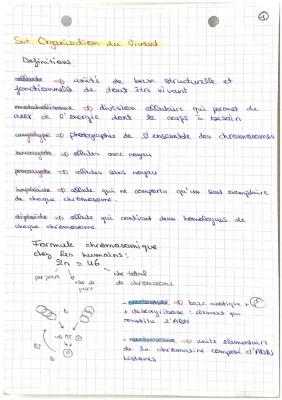 1
SVT Organisation du Vivant
Définitions:
cellule → unité de base structurelle et
fonctionnelle de tout être vivant
métabolisme → division cellulaire qui permet de
créer de l'énergie dont le corps à besoin
caryotype → photographie de l'ensemble des chromosomes
eucaryote → cellules avec noyau
procaryote → cellules sans noyau
haploïde → cellule qui ne comporte qu'un seul exemplaire
de chaque chromosome.
diploïde → cellule qui contient deux homologues de
chaque chromosome
Formule chromosomique
chez les humains:
2n = 46
par paire
nbr de
paire
nbr total
de chromosomes
- nucléotide → base azotique + P
+ désoxyribose : élément qui
constitue l'ADN
- nucléosome → unité élémentaire
de la chromatine composé d'ADN
histones